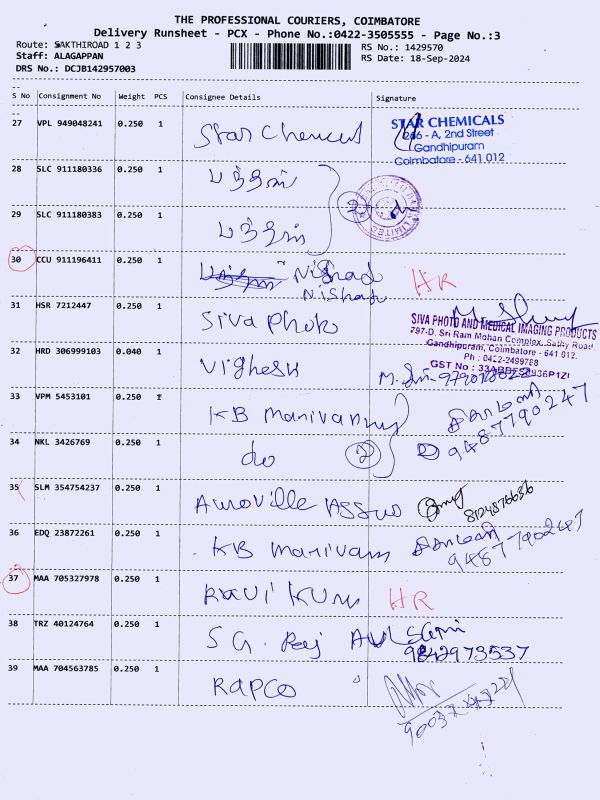 THE PROFESSIONAL COURIERS, COIMBATORE
Delivery Runsheet - PCX - Phone No.:0422-3505555 - Page No.:3
Route: SAKTHIROAD 1 2 3
RS No.: 1429570
Staff: ALAGAPPAN
RS Date: 18-Sep-2024
DRS No.: DCJB142957003
S No Consignment No Weight PCS Consignee Details Signature
27 VPL 949048241 0.250 1 Star Chemicals
STAR CHEMICALS
266 - A, 2nd Street
Gandhipuram
Coimbatore - 641 012
28 SLC 911180336 0.250 1
2
29 SLC 911180383 0.250 1
30 CCU 911196411 0.250 1 Nishad HR
Nishad
31 HSR 7212447 0.250 1 Siva Photo
SIVA PHOTO AND MEDICAL IMAGING PRODUCTS
797-D, Sri Ram Mohan Complex, Sathy Road,
Gandhipuram, Coimbatore - 641 012.
Ph : 0422-2499788
GST No :
32 HRD 306999103 0.040 1 Vighesh
33 VPM 5453101 0.250 1 KB Manivannan
9487790247
34 NKL 3426769 0.250 1 do 2
35 SLM 354754237 0.250 1 Auroville
8124876636
36 EDQ 23872261 0.250 1 KB Manivann
9487790247
37 MAA 705327978 0.250 1 Ravi Kum HR
38 TRZ 40124764 0.250 1 S G. Raj
9842973537
39 MAA 704563785 0.250 1 Rapco